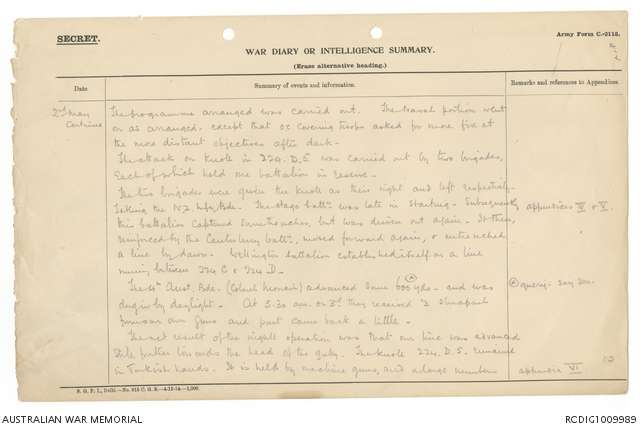 SECRET.
Army Form C.-2118.
WAR DIARY OR INTELLIGENCE SUMMARY.
(Erase alternative heading.)
Date
Summary of events and information.
Remarks and references to Appendices.
2nd May
Continued
The programme arranged was carried out. The naval portion went
on as arranged. except that oc covering troops asked for more fire at
the most distant objectives after dark.
The attack on knoll in 224. D.5 was carried out by two brigades,
each of which held one battalion in reserve.
The two brigades were given the knoll as their right and left respectively.
the N.Z. Inf. Bde. The Otago battn. was late in starting. Subsequently
this battalion captured some trenches, but was driven out again. It then,
reinforced by the Canterbury battn, moved forward again, & entrenched
a line by dawn. Wellington battalion established itself on a line
running between 224 C & 224 D.
appendices IV & V.
The 4th Aust. Bde. (Colonel Monash) advanced some 600 yds. and was
dug in by daylight. At 3.30 am. on 3rd they received shrapnel
from our own guns and part came back a little.
(A)
(A) query. say 200.
The net result of the night operation was that our line was advanced
little further towards the head of the gully. The knoll 224. D. 5. remained
in Turkish hands. It is held by machine guns, and a large number
appendix VI
S. G. P. I., Delhi.
AUSTRALIAN WAR MEMORIAL
RCDIG1009989